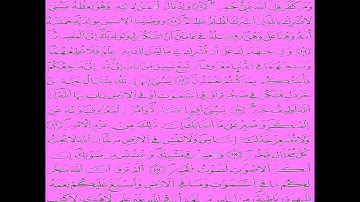 وَمَن كَفَرَ فَإِنَّ ٱللَّهَ غَنِيٌّ حَمِيدٌ ١٢ وَإِذْ قَالَ لُقْمَٰنُ لِٱبْنِهِۦ وَهُوَ يَعِظُهُۥ يَٰبُنَيَّ
لَا تُشْرِكْ بِٱللَّهِ إِنَّ ٱلشِّرْكَ لَظُلْمٌ عَظِيمٌ ١٣ وَوَصَّيْنَا ٱلْإِنسَٰنَ بِوَٰلِدَيْهِ حَمَلَتْهُ
أُمُّهُۥ وَهْنًا عَلَىٰ وَهْنٍ وَفِصَٰلُهُۥ فِي عَامَيْنِ أَنِ ٱشْكُرْ لِي وَلِوَٰلِدَيْكَ إِلَيَّ ٱلْمَصِيرُ
١٤ وَإِن جَٰهَدَاكَ عَلَىٰٓ أَن تُشْرِكَ بِي مَا لَيْسَ لَكَ بِهِۦ عِلْمٌ فَلَا تُطِعْهُمَا
وَصَاحِبْهُمَا فِي ٱلدُّنْيَا مَعْرُوفًا وَٱتَّبِعْ سَبِيلَ مَنْ أَنَابَ إِلَيَّ ثُمَّ إِلَيَّ مَرْجِعُكُمْ
فَأُنَبِّئُكُم بِمَا كُنتُمْ تَعْمَلُونَ ١٥ يَٰبُنَيَّ إِنَّهَآ إِن تَكُ مِثْقَالَ حَبَّةٍ مِّنْ
خَرْدَلٍ فَتَكُن فِي صَخْرَةٍ أَوْ فِي ٱلسَّمَٰوَٰتِ أَوْ فِي ٱلْأَرْضِ يَأْتِ بِهَا ٱللَّهُ إِنَّ
ٱللَّهَ لَطِيفٌ خَبِيرٌ ١٦ يَٰبُنَيَّ أَقِمِ ٱلصَّلَوٰةَ وَأْمُرْ بِٱلْمَعْرُوفِ وَٱنْهَ عَنِ
ٱلْمُنكَرِ وَٱصْبِرْ عَلَىٰ مَآ أَصَابَكَ إِنَّ ذَٰلِكَ مِنْ عَزْمِ ٱلْأُمُورِ ١٧
وَلَا تُصَعِّرْ خَدَّكَ لِلنَّاسِ وَلَا تَمْشِ فِي ٱلْأَرْضِ مَرَحًا إِنَّ ٱللَّهَ لَا يُحِبُّ
كُلَّ مُخْتَالٍ فَخُورٍ ١٨ وَٱقْصِدْ فِي مَشْيِكَ وَٱغْضُضْ مِن صَوْتِكَ إِنَّ
أَنكَرَ ٱلْأَصْوَٰتِ لَصَوْتُ ٱلْحَمِيرِ ١٩ أَلَمْ تَرَوْا۟ أَنَّ ٱللَّهَ سَخَّرَ
لَكُم مَّا فِي ٱلسَّمَٰوَٰتِ وَمَا فِي ٱلْأَرْضِ وَأَسْبَغَ عَلَيْكُمْ نِعَمَهُۥ